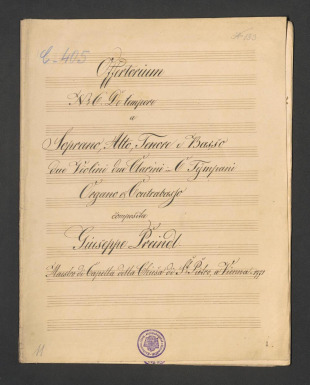 C-405
Offertorium
No 6. De tempore
a
Soprano, Alto, Tenore è Basso
due Violini due Clarini in C Tympani
Organo è Contrabasso
composito
Giuseppe Preindl
Maestro di Capella della Chiesa di St. Pietro, a Vienna. 1793
11
1.